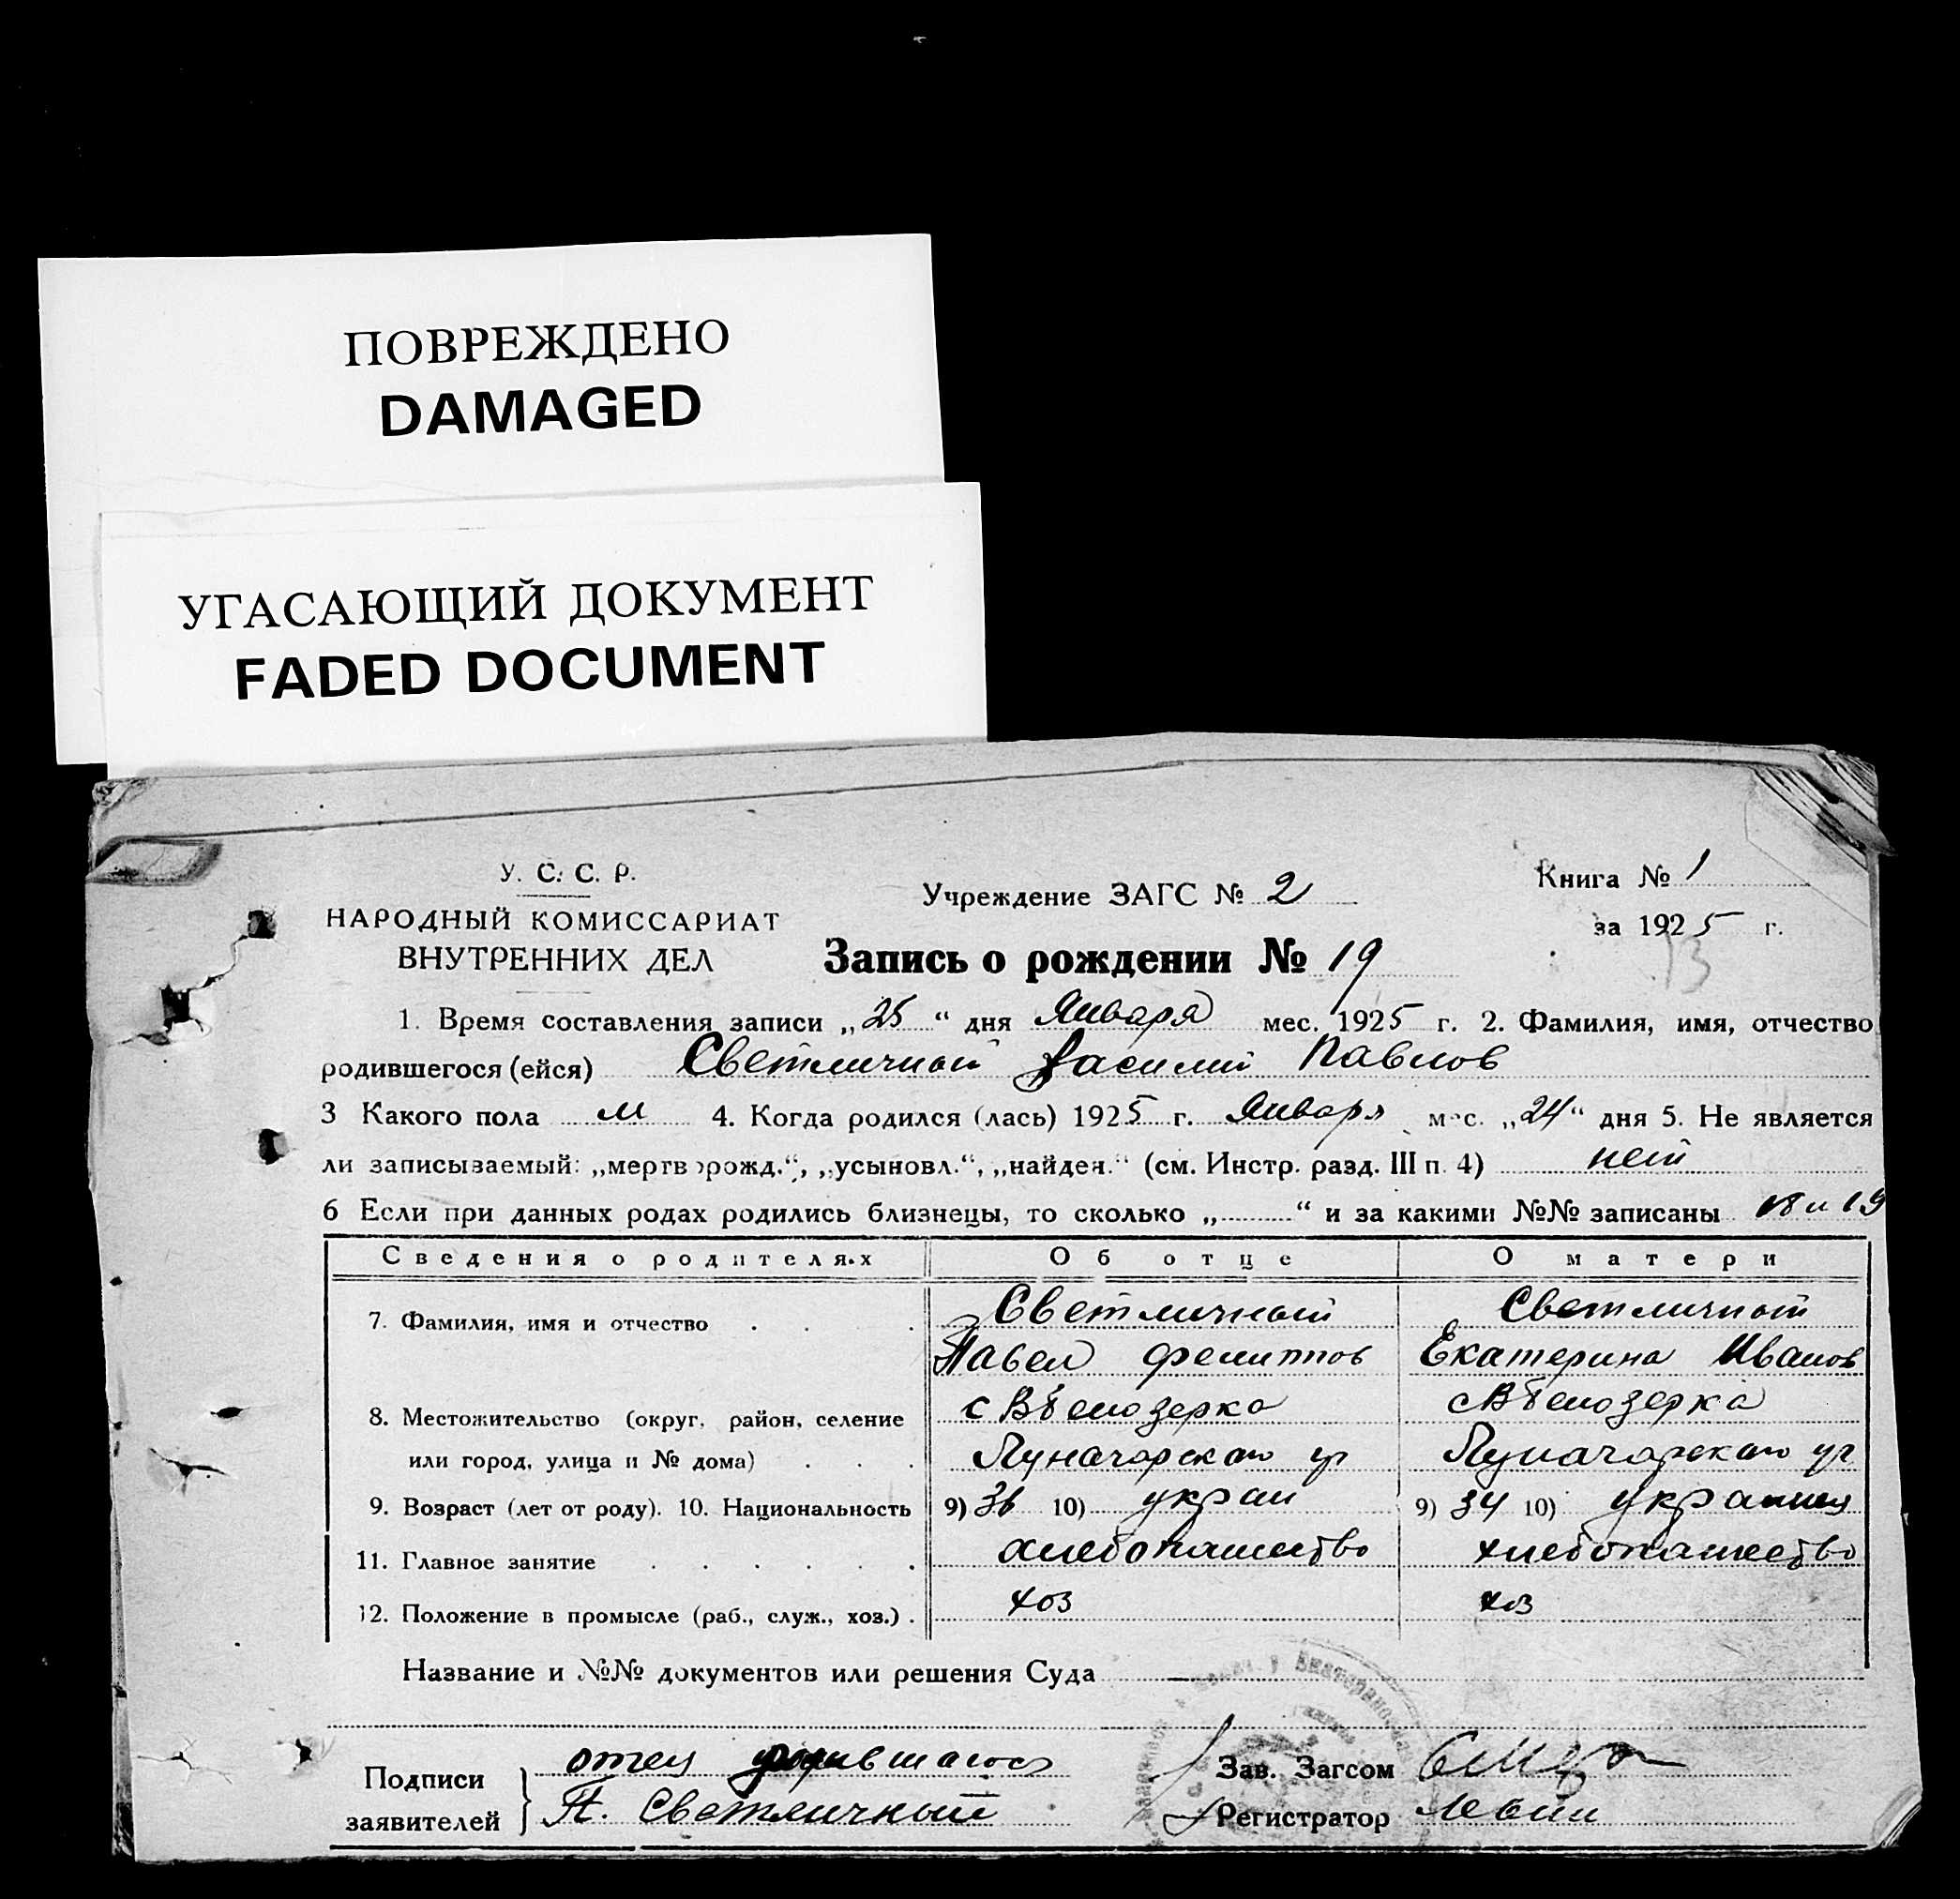 ПОВРЕЖДЕНО
DAMAGED
УГАСАЮЩИЙ ДОКУМЕНТ
FADED DOCUMENT
У. С. С. Р.
НАРОДНЫЙ КОМИССАРИАТ
ВНУТРЕННИХ ДЕЛ
Учреждение ЗАГС № 2
Книга № 1
за 1925 г.
13
Запись о рождении № 19
1. Время составления записи „25“ дня Января мес. 1925 г. 2. Фамилия, имя, отчество
родившегося (ейся) Светличной Василий Павлов
3 Какого пола м 4. Когда родился (лась) 1925 г. Января мес. „24“ дня 5. Не является
ли записываемый: „мертворожд.“, „усыновл.“, „найден.“ (см. Инстр. разд. III п. 4) нет
6 Если при данных родах родились близнецы, то сколько „ “ и за какими №№ записаны 18 и 19
Сведения о родителях Об отце О матери
7. Фамилия, имя и отчество Светличный Светличной
Павел Фелиппов Екатерина Иванов
8. Местожительство (округ, район, селение с Вбелозерка с Вбелозерка
или город, улица и № дома) Луначарского ул Луначарского ул
9. Возраст (лет от роду). 10. Национальность 9) 36 10) украи 9) 34 10)
11. Главное занятие хлебопашество хлебопашество
12. Положение в промысле (раб., служ., хоз.) хоз хоз
Название и №№ документов или решения Суда —
Подписи заявителей отец
П. Светличный
Зав. Загсом
Регистратор